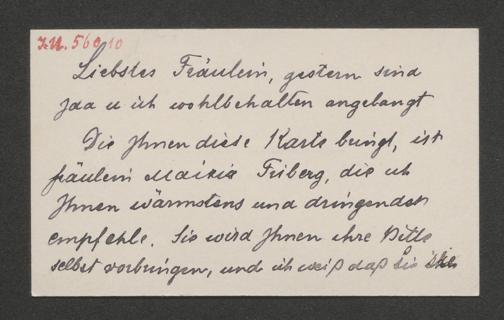 I.N. 560 10
Liebstes Fräulein, gestern sind
Ida u ich wohlbehalten angelangt
Die Ihnen diese Karte bringt, ist
fräulein Friberg, die ich
Ihnen wärmstens und dringendst
empfehle. Sie wird Ihnen ihre Bitte
selbst vorbringen, und ich weiß daß Sie